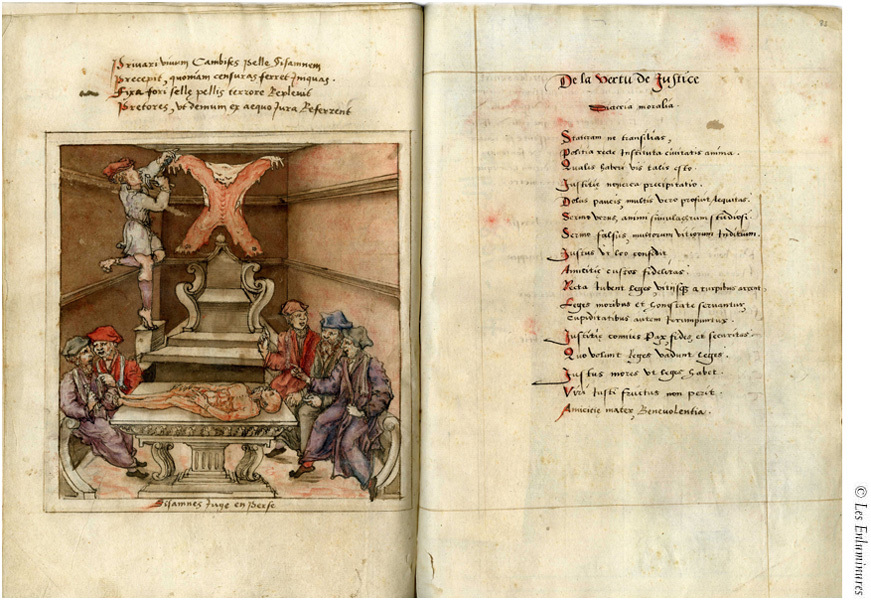 Privari vivum Cambises pelle Sisamnem
Precepit, quoniam censuras ferret Iniquas.
Fixa fori selle pellis terrore Replevit
Pretores, Vt demum ex aequo Jura Referrent
Sisamnes Juge en Perse
De la vertu de Justice
moralia.
Stateram ne transilias,
Politia recte Instituta civitatis anima.
Qualis haberi vis talis esto.
Justitie noverca precipitatio.
Dolus paucis, multis vero prosiunt, Aequitas.
Sermo verus, animi simulachrum studiosi.
Sermo falsus, multorum vitiorum Inditium.
Justus Vt leo confidit
Amicitie custos fidelitas.
Recta Iubent leges, a turpibus arcent,
Leges moribus et honestate servantur,
Cupiditatibus autem Irrumpuntur.
Justitie comites Pax, fides, et securitas.
Quo volunt Reges vadunt leges.
Justus mores Vt leges habet.
Viri Iusti fructus non perit.
Amicitie mater, Benevolentia.
© Les Enluminures